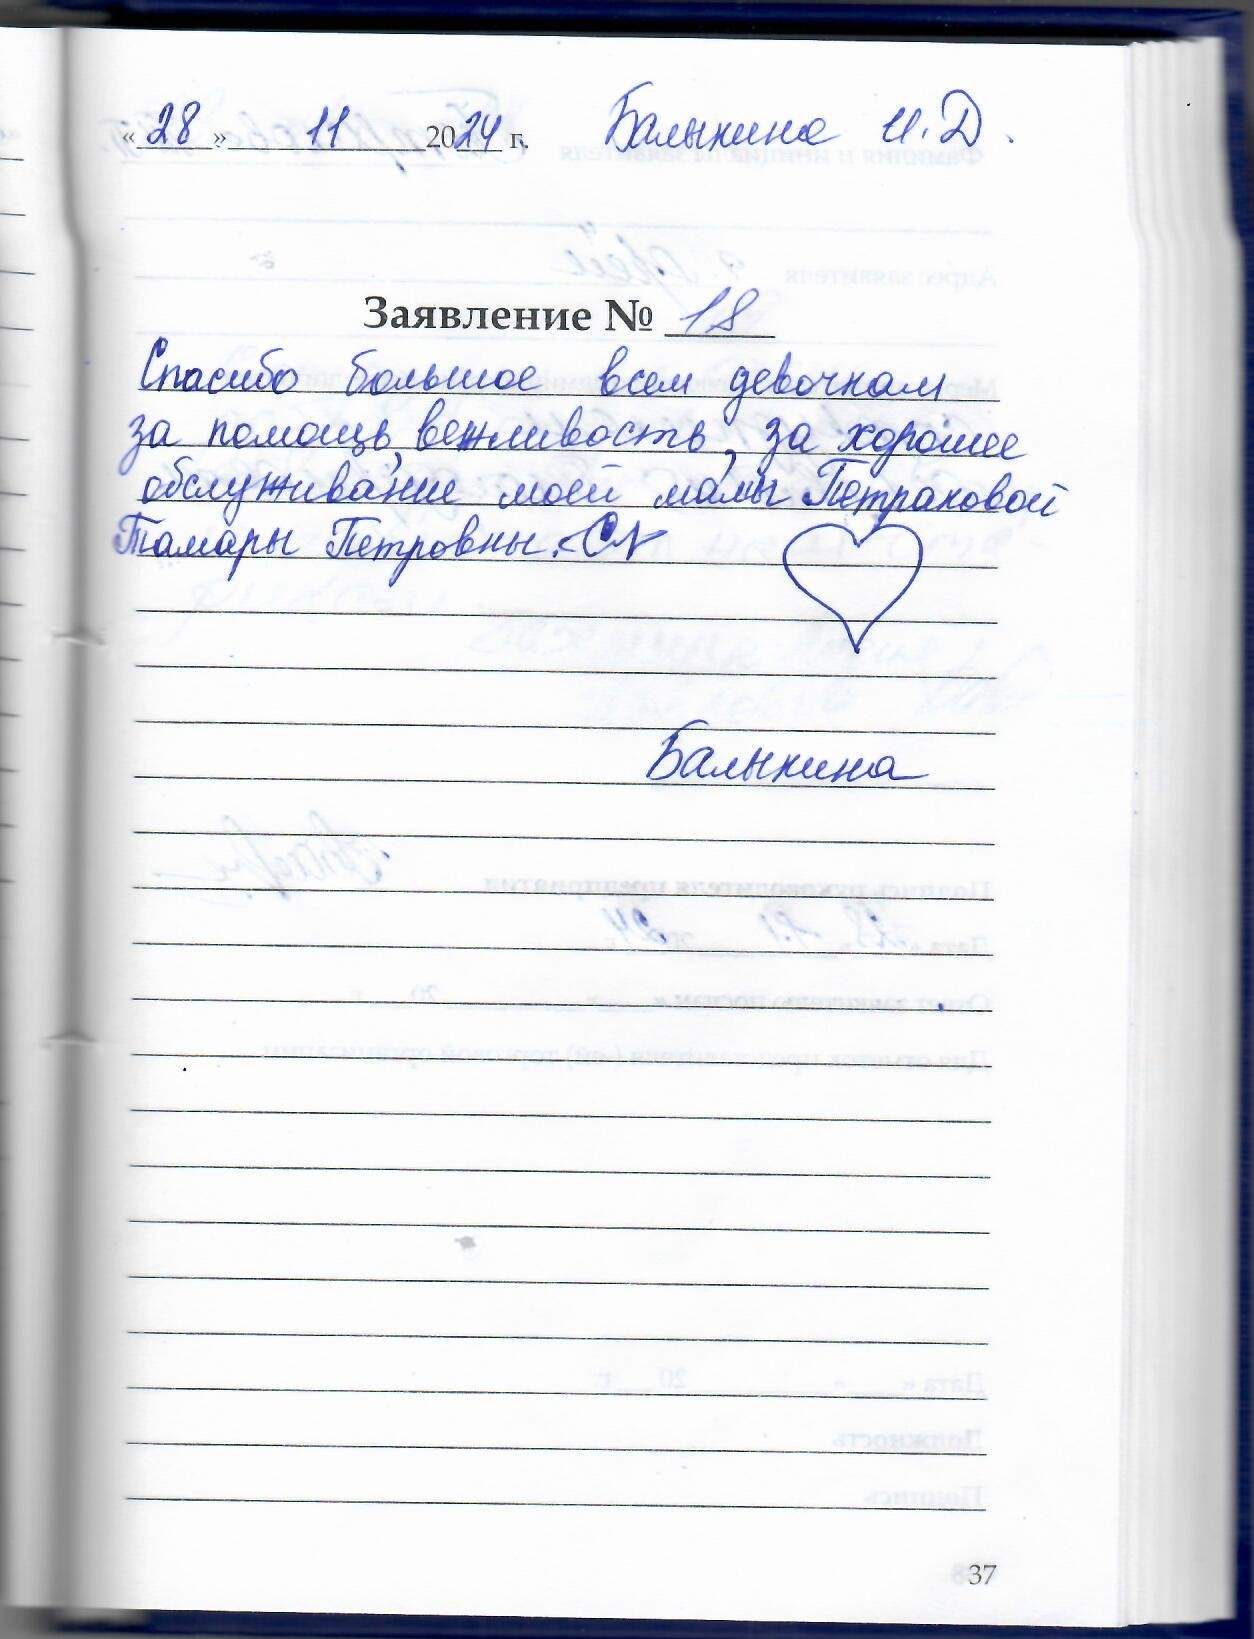 «28» 11 2024 г. Балыкина И.Д.
Заявление № 18
Спасибо большое всем девочкам
за помощь, вежливость, за хорошее
обслуживание моей мамы Петраковой
Тамары Петровны.
Балыкина
37